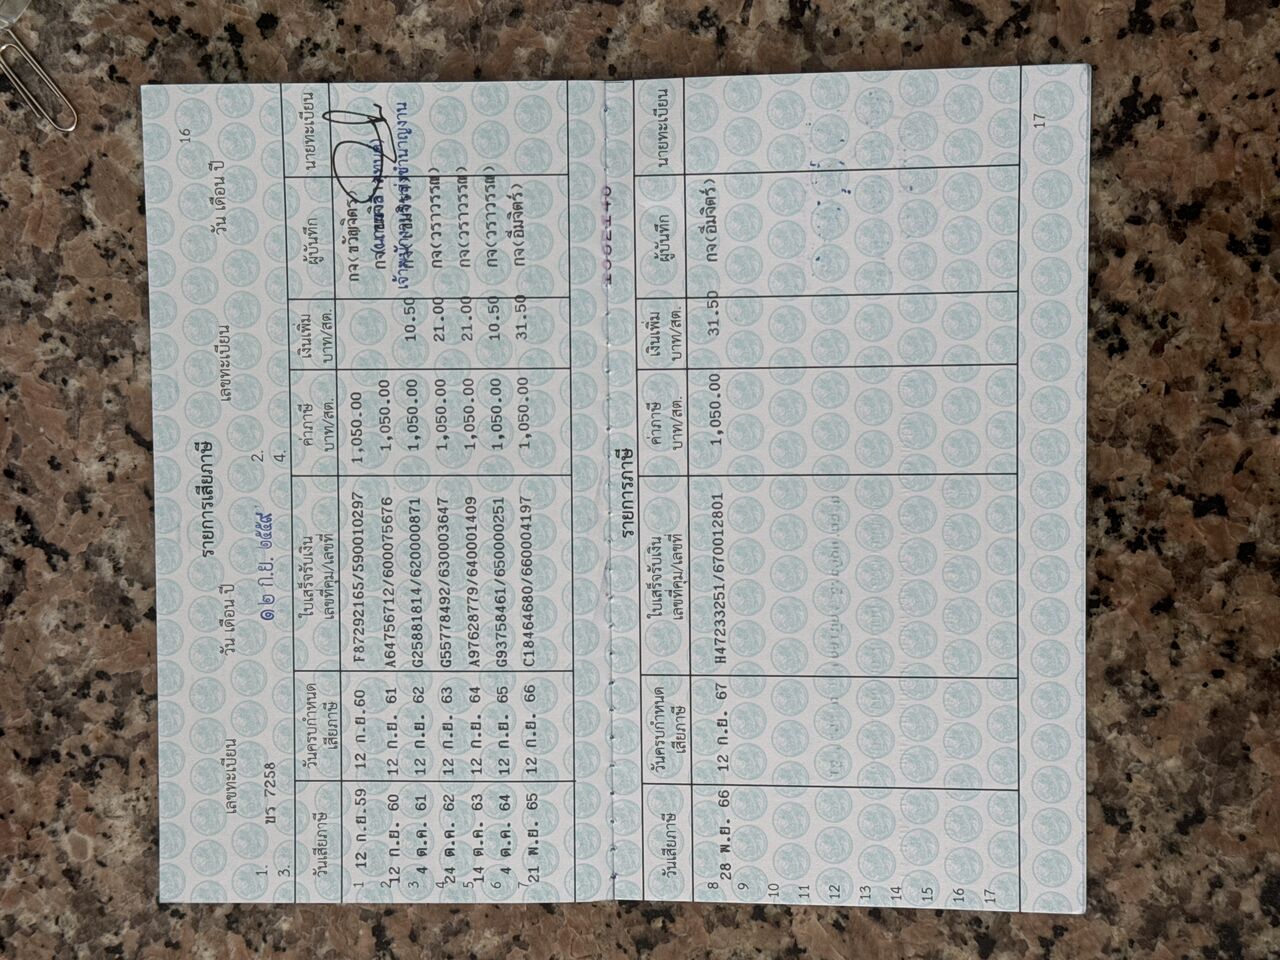 16
รายการเสียภาษี
เลขทะเบียน วัน เดือน ปี เลขทะเบียน วัน เดือน ปี
1. ขร 7258 ๑๒ ก.ย. ๒๕๕๙ 2.
3. 4.
วันเสียภาษี วันครบกำหนดเสียภาษี ใบเสร็จรับเงิน เลขที่คุม/เลขที่ ค่าภาษี บาท/สต. เงินเพิ่ม บาท/สต. ผู้บันทึก นายทะเบียน
1 12 ก.ย.59 12 ก.ย.60 F87292165/590010297 1,050.00 กจ(ขวัญจิตร)
2 12 ก.ย. 60 12 ก.ย. 61 A64756712/600075676 1,050.00
3 4 ต.ค. 61 12 ก.ย. 62 G25881814/620000871 1,050.00 10.50
4 24 ต.ค. 62 12 ก.ย. 63 G55778492/630003647 1,050.00 21.00 กจ(วราวรรณ)
5 14 ต.ค. 63 12 ก.ย. 64 A97628779/640001409 1,050.00 21.00 กจ(วราวรรณ)
6 4 ต.ค. 64 12 ก.ย. 65 G93758461/650000251 1,050.00 10.50 กจ(วราวรรณ)
7 21 พ.ย. 65 12 ก.ย. 66 C18464680/660004197 1,050.00 31.50 กจ(อิ่มจิตร์)
รายการภาษี
วันเสียภาษี วันครบกำหนดเสียภาษี ใบเสร็จรับเงิน เลขที่คุม/เลขที่ ค่าภาษี บาท/สต. เงินเพิ่ม บาท/สต. ผู้บันทึก นายทะเบียน
8 28 พ.ย. 66 12 ก.ย. 67 H47233251/670012801 1,050.00 31.50 กจ(อิ่มจิตร์)
9
10
11
12
13
14
15
16
17
17